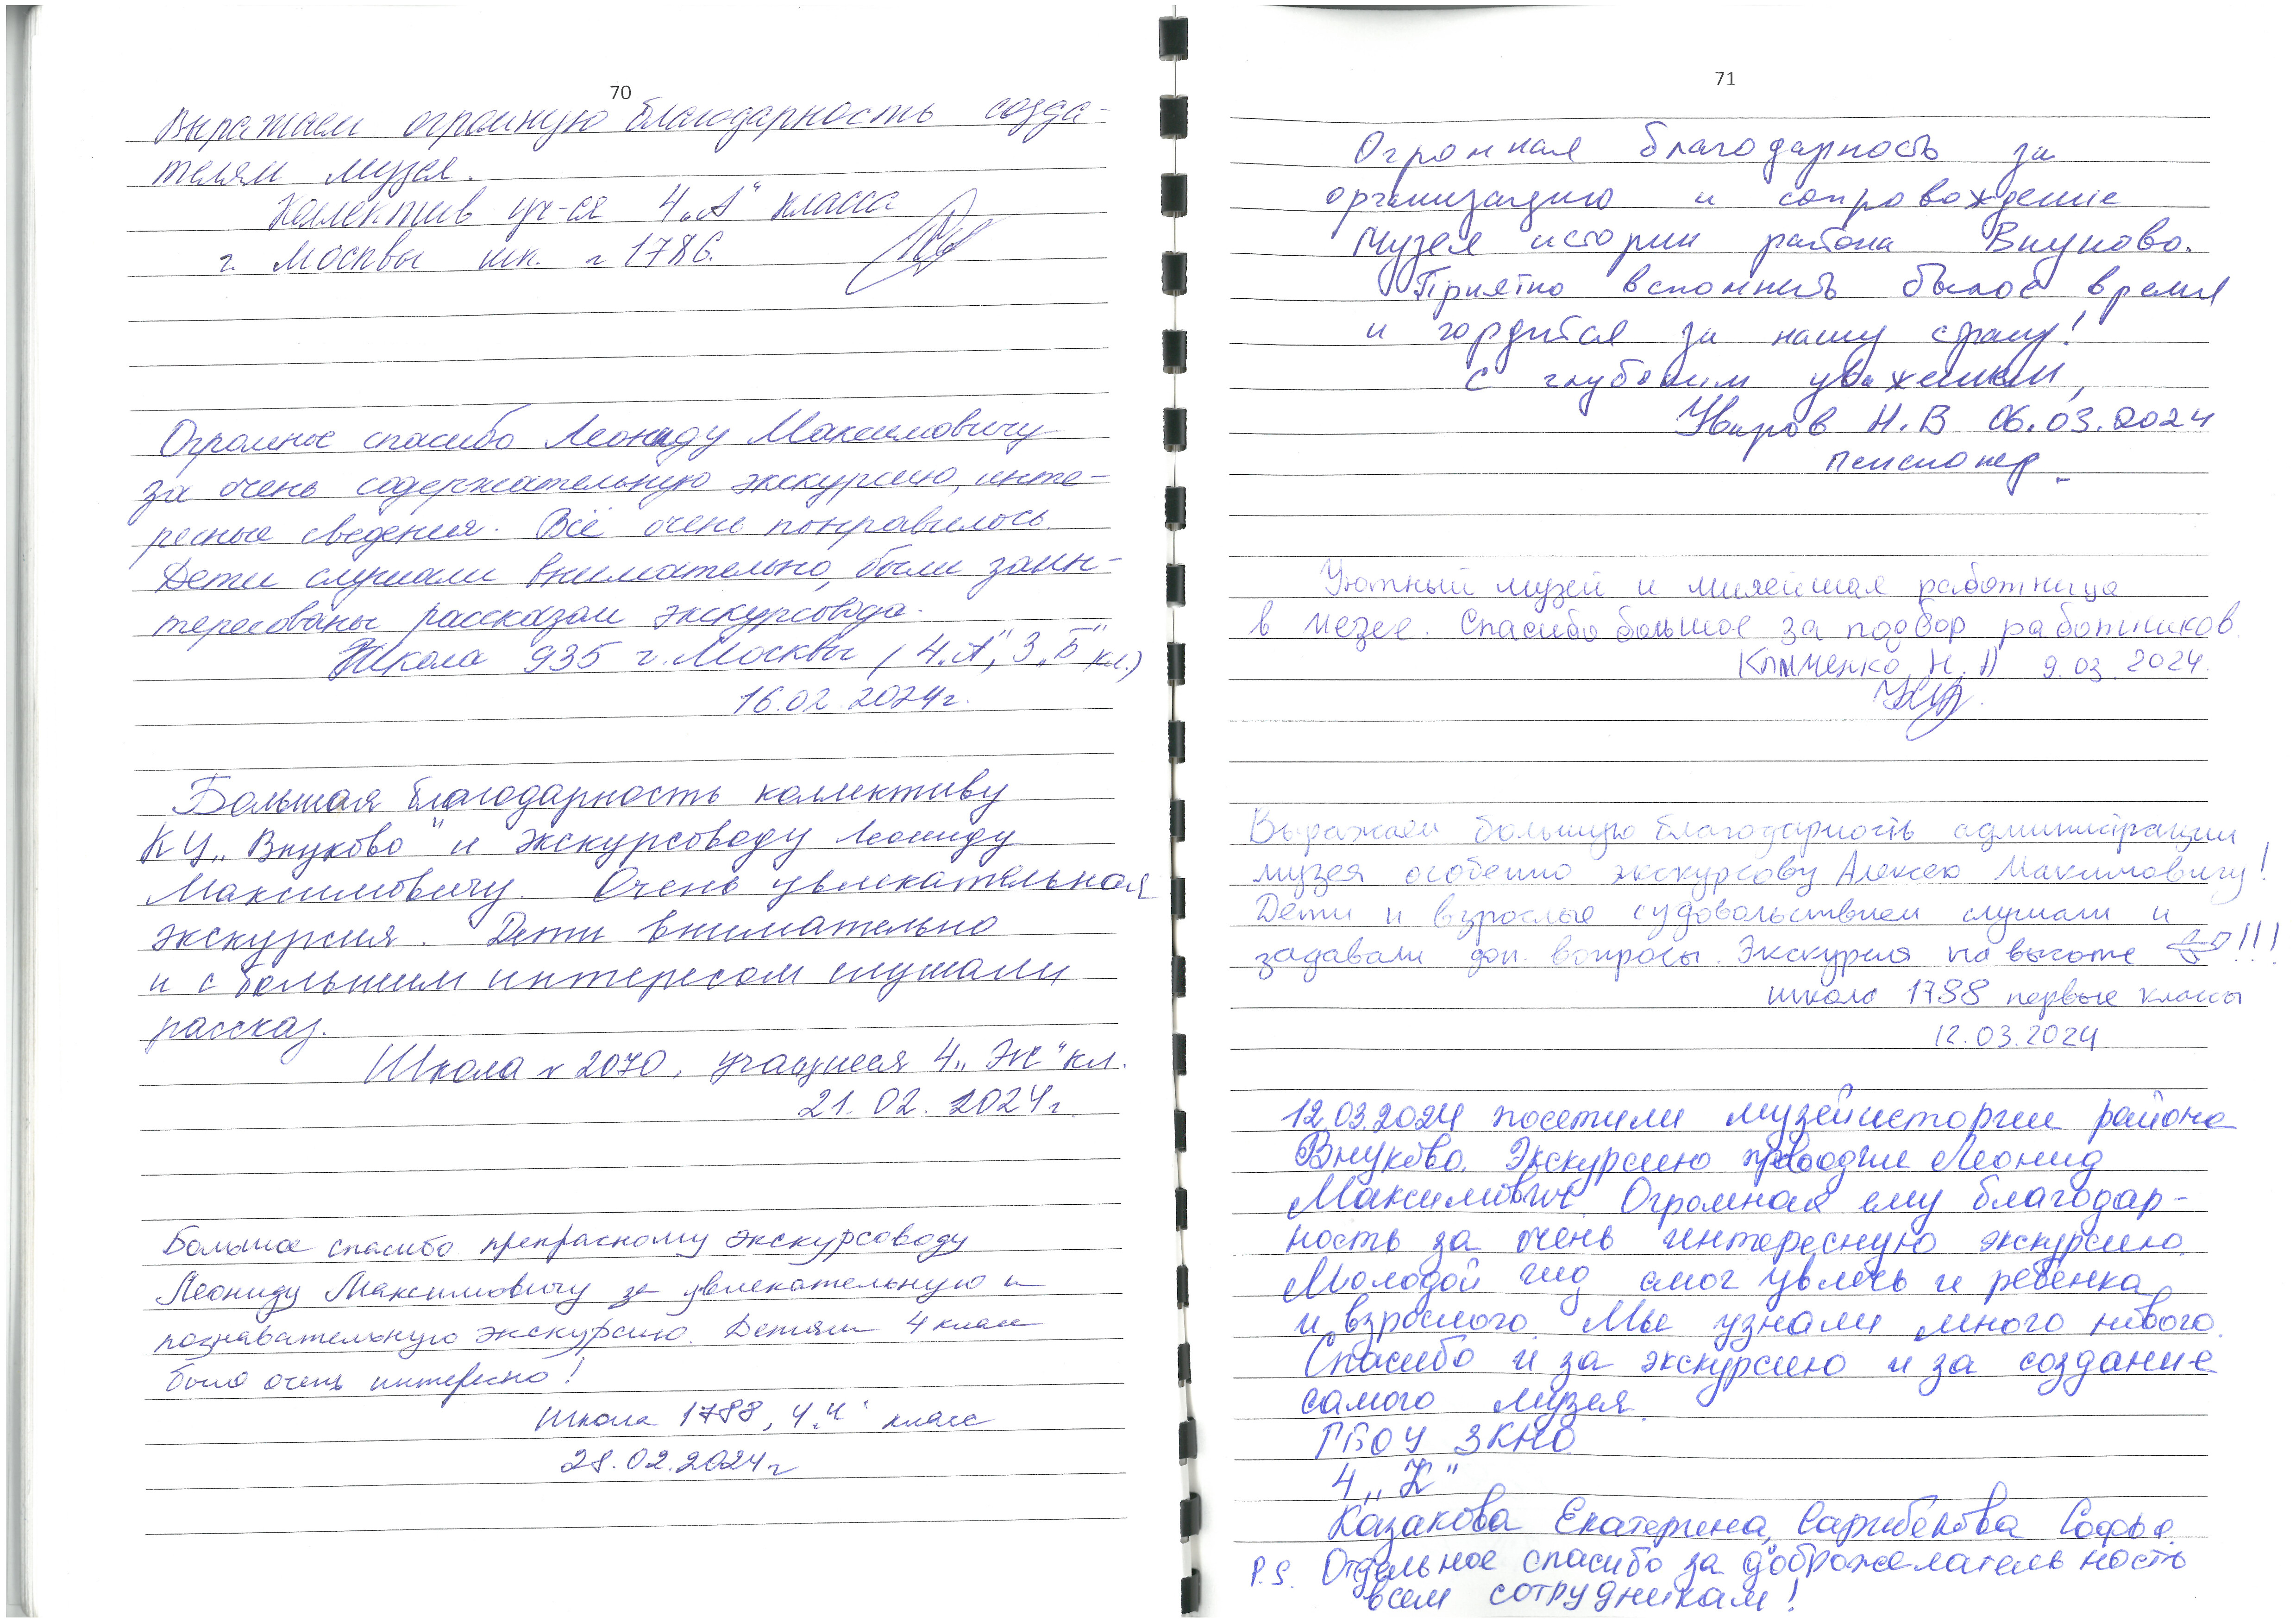 70
Выражаем огромную благодарность созда-
телям музея.
Коллектив уч-ся 4 „А" класса
г. Москвы шк. 1786.
Огромное спасибо Леониду Максимовичу
за очень содержательную экскурсию, инте-
ресные сведения. Всё очень понравилось.
Дети слушали внимательно, были заин-
тересованы рассказом экскурсовода.
Школа 935 г. Москвы (4 „А", 3 „Б" кл.)
16.02.2024г.
Большая благодарность коллективу
КЦ „Внуково" и экскурсоводу Леониду
Максимовичу. Очень увлекательная
экскурсия. Дети внимательно
и с большим интересом слушали
рассказ.
Школа № 2070, учащиеся 4 „Ж" кл.
21.02.2024г.
Большое спасибо прекрасному экскурсоводу
Леониду Максимовичу за увлекательную и
познавательную экскурсию. Детям 4 класс
было очень интересно!
Школа 1788, 4 „Ч" класс
28.02.2024г
71
Огромная благодарность за
организацию и сопровождение
Музея истории района Внуково.
Приятно вспомнить былое время
и гордится за нашу страну!
С глубоким уважением,
Н.В 06.03.2024
пенсионер
Уютный музей и милейшая работница
в мезее. Спасибо большое за подбор работников.
Клименко Н. А 9.03.2024.
Выражаем большую благодарность администрации
музея особенно экскурсову Алексею Максимовичу!
Дети и взрослые судовольствием слушали и
задавали доп. вопросы. Экскурсия на высоте !!!
школа 1788 первые классы
12.03.2024
12.03.2024 посетили музей истории района
Внуково. Экскурсию проводил Леонид
Максимович. Огромная ему благодар-
ность за очень интересную экскурсию.
Молодой гид смог увлечь и ребенка
и взрослого. Мы узнали много нового.
Спасибо и за экскурсию и за создание
самого музея.
ГБОУ ЗКНО
4 „К"
Казакова Екатерина, Сарибекова Софья.
P.S. Отдельное спасибо за доброжелательность
всем сотрудникам!